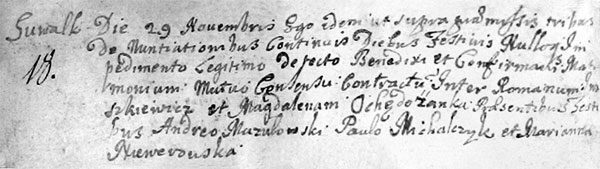 Suwalk Die 29 Novembris Ego idem ut supra præmissis tribus
18. De Nuntiationibus Continuis Diebus Festivis Nulloq Im
pedimento Legitimo detecto Benedixi et Confirmavi Mat
monium Mutuo Consensu Contractu Inter Romanum
szkiewicz et Magdalenam Ochędożanka Præsentibus Testi
bus Andreo Mazulowski Paulo Michalczyk et Marianna
Niewerouska